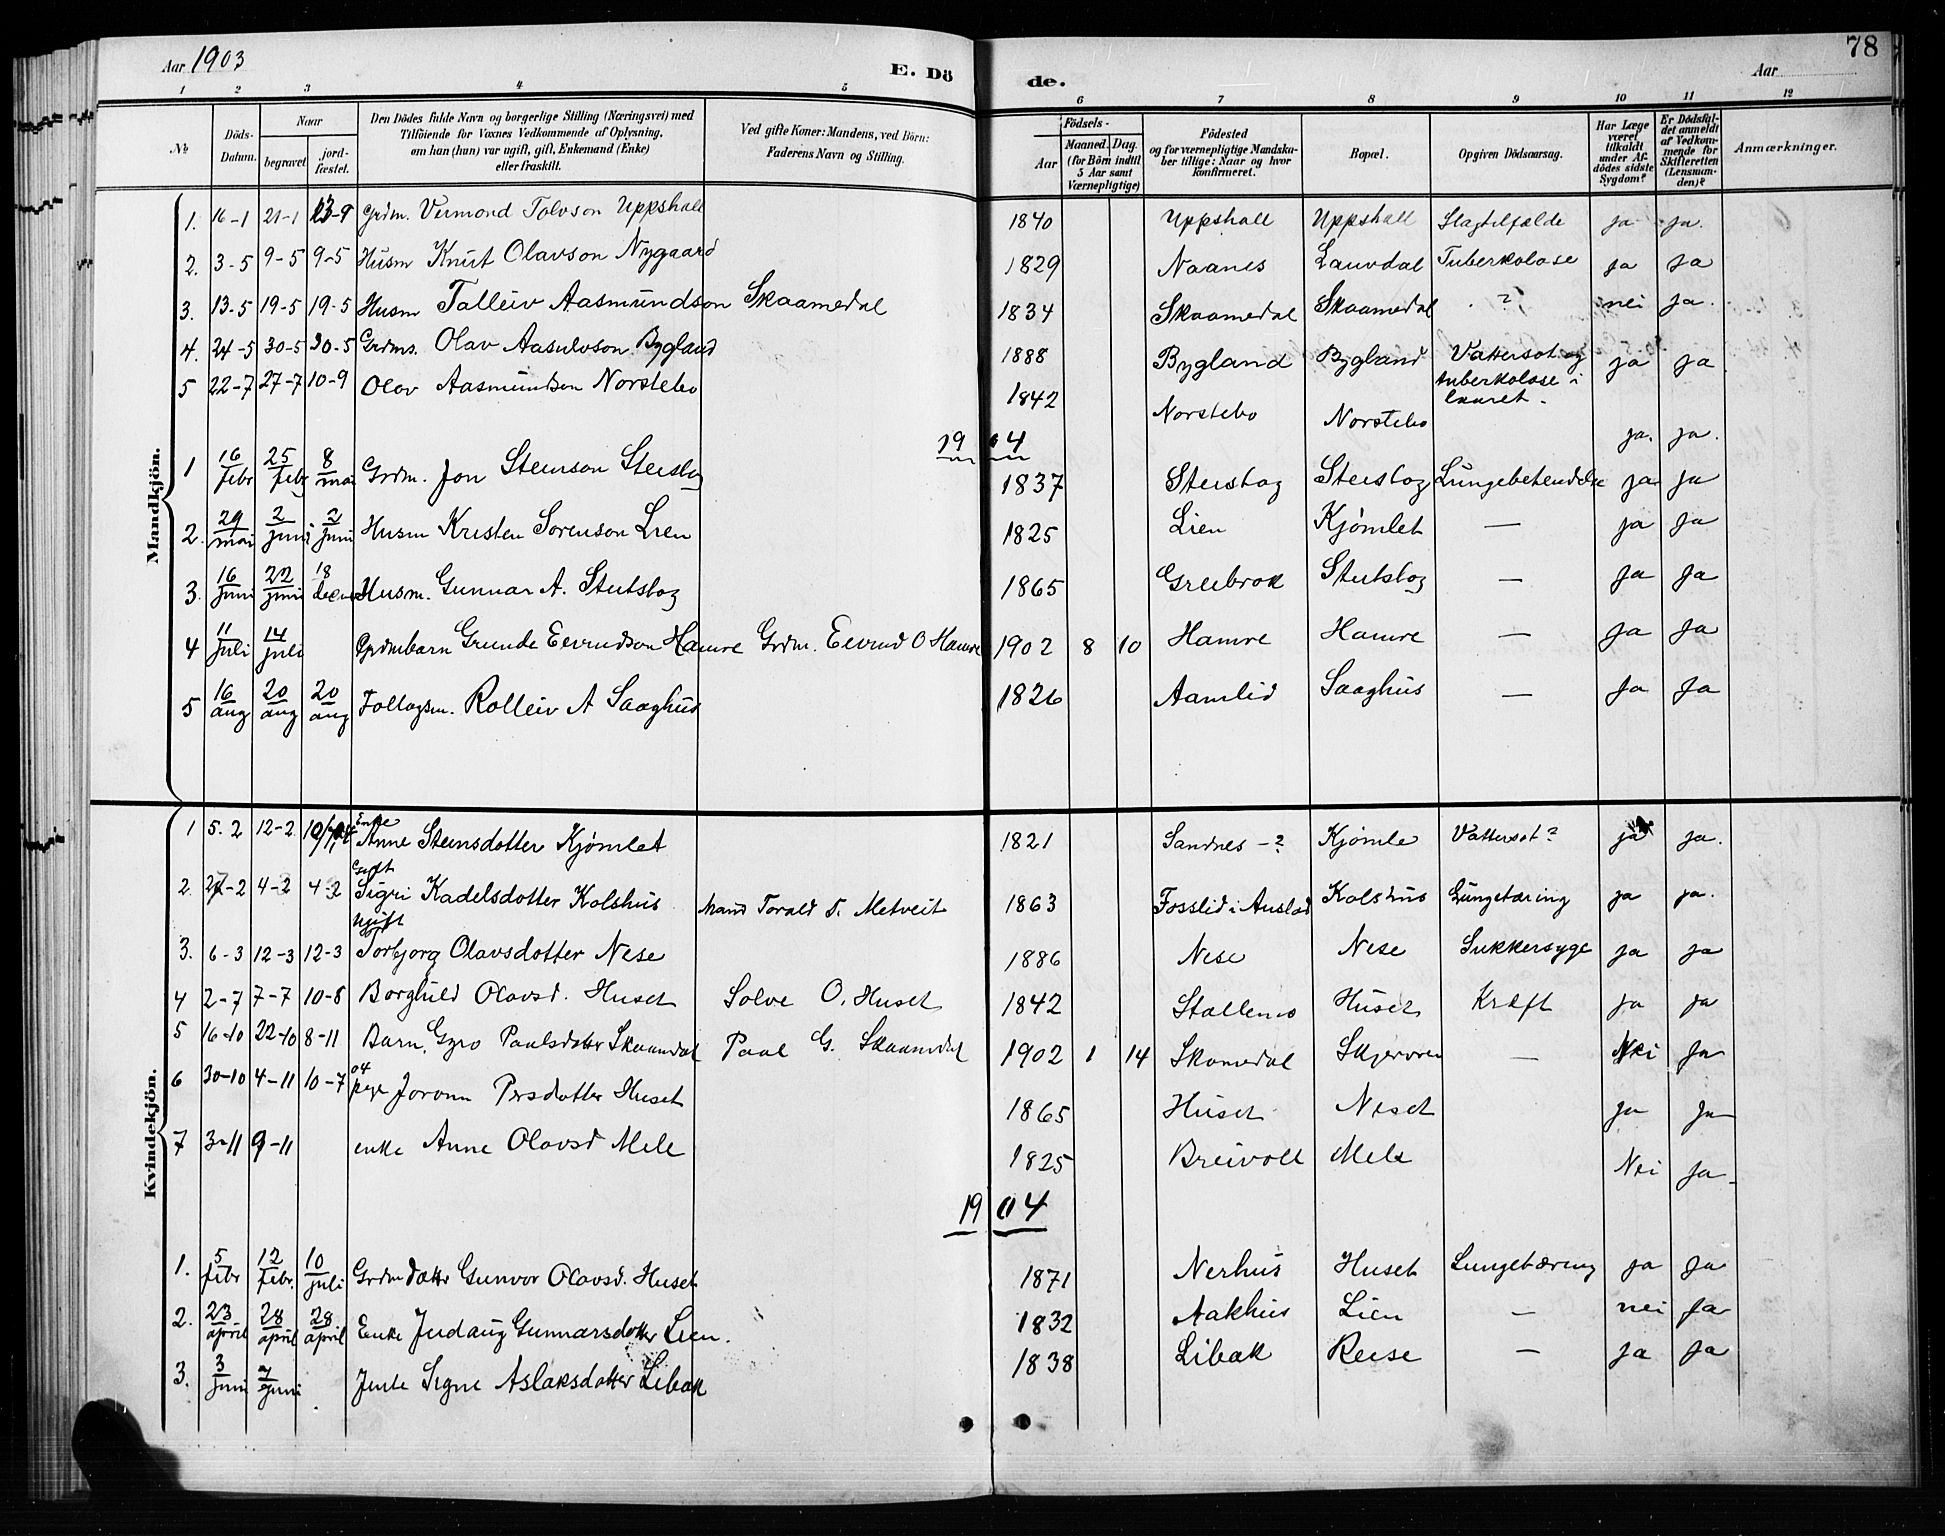 Aar 1903
E. Dö de.
Aar
78
1 2 3 4 5 6 7 8 9 10 11 12
№
Döds-Datum.
Naar
begravet
jord-fæstet.
Den Dödes fulde Navn og borgerlige Stilling (Næringsvei) med
Tilföiende for Voxnes Vedkommende af Oplysning,
om han (hun) var ugift, gift, Enkemand (Enke)
eller fraskilt.
Ved gifte Koner: Mandens, ved Börn:
Faderens Navn og Stilling.
Födsels-
Aar
Maaned. Dag.
(for Börn indtil
5 Aar samt
Værnepligtige)
Födested
og for værnepligtige Mandska-
ber tillige: Naar og hvor
konfirmeret.
Bopæl.
Opgiven Dödsaarsag.
Har Læge
været
tilkaldt
under Af-
dödes sidste
Sygdom?
Er Dödsfal-
det anmeldt
af Vedkom-
mende for
Skifteretten
(Lensman-
den)?
Anmærkninger.
Mandkjön.
1. 16-1 21-1 Grdm. Vermond Tolvson Uppshall 1840 Uppshall Uppshall Slagtilfælde ja ja.
2. 3-5 9-5 9-5 Husm Knut Olavson Nygaard 1829 Naanes Lauvdal Tuberkolose ja ja
3. 13-5 19-5 19-5 Husm Talleiv Aasmundson Skaamedal 1834 Skaamedal Skaamedal ? nei ja.
4. 24-5 30-5 30-5 Grdms. Olav Aasulvson Bygland 1888 Bygland Bygland Vattersot og tuberkolose i laaret. ja ja
5 22-7 27-7 10-9 Olav Aasmundson Norstebo 1842 Norstebo Norstebo ja. ja.
1904
1 16 febr 25 febr 8 mai Grdm. Jon Steinson 1837 Lungebetendelse ja ja
2. 29 mai 2 juni 2 juni Husm Kristen Sorenson Lien 1825 Lien Kjømlet — ja ja
3. 16 juni 22 juni 18 Husm. Gunnar A. Stutstog 1865 Greibrok Stutstog — ja ja
4 11 juli 14 juli Grdmbarn Grunde Eivindson Hamre Grdm. Eivind O Hamre 1902 8 10 Hamre Hamre — ja ja
5 16 aug 20 aug 20 aug Follogsm. Rolleiv A Saaghus 1826 Aamlid Saaghus — ja ja
Kvindekjön.
1 5-2 12-2 Enke Anne Steinsdotter Kjømlet 1821 Sandnes -? Kjømle Vattersot? ja ja.
2. 4-2 4-2 Gift Sigri Kadelsdotter Kolshus Mand Torald T. Metveit 1863 Fosslid i Kolshus Lungetæring ja ja.
3. 6-3 12-3 12-3 Ugift Torbjorg Olavsdotter Nese 1886 Nese Nese Sukkersyge ja ja
4 2-7 7-7 10-8 Borghild Olavsd. Huset Solve O. Huset 1842 Stallemo Huset Kræft ja ja
5 16-10 22-10 8-11 Barn, Gyro Paulsdotter Skaamdal Paal G. Skaamdal 1902 1 14 Skomedal — Nei ja
6 30-10 4-11 10-7 04 pige Jorunn Persdotter Huset 1865 Huset Neset ja ja
7 3-11 9-11 enke Anne Olavsd Mele 1825 Breivoll Mele Nei ja
1904
1. 5 febr 12 febr. 10 juli Grdm datter Gunvor Olavsd. Huset 1871 Nerhus Huset Lungetæring ja ja
2. 23 april 28 april 28 april Enke Indaug Gunnarsdotter Lien. 1832 Aakhus Lien — nei ja
3. 3 juni 7 juni Jente Signe Aslaksdotter Libak 1838 Libak Reise — ja ja